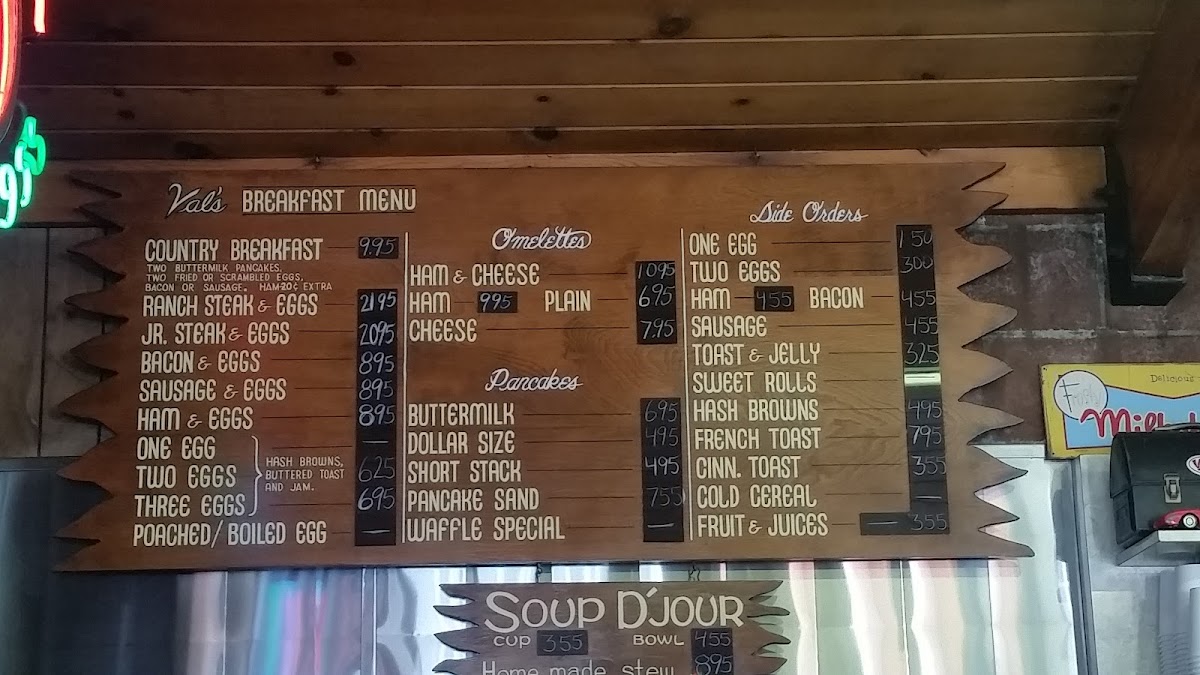 Val's BREAKFAST MENU
COUNTRY BREAKFAST 9.95
TWO BUTTERMILK PANCAKES,
TWO FRIED OR SCRAMBLED EGGS,
BACON OR SAUSAGE. HAM-20¢ EXTRA
RANCH STEAK & EGGS 2195
JR. STEAK & EGGS 2095
BACON & EGGS 895
SAUSAGE & EGGS 895
HAM & EGGS 895
ONE EGG —
TWO EGGS 625
THREE EGGS 695
HASH BROWNS,
BUTTERED TOAST
AND JAM.
POACHED/BOILED EGG —
Omelettes
HAM & CHEESE 1095
HAM 995 PLAIN 695
CHEESE 7.95
Pancakes
BUTTERMILK 695
DOLLAR SIZE 495
SHORT STACK 495
PANCAKE SAND 755
WAFFLE SPECIAL —
Side Orders
ONE EGG 150
TWO EGGS 300
HAM 455 BACON 455
SAUSAGE 455
TOAST & JELLY 325
SWEET ROLLS
HASH BROWNS 495
FRENCH TOAST 795
CINN. TOAST 355
COLD CEREAL —
FRUIT & JUICES — 355
SOUP D'JOUR
CUP 355 BOWL 455
Home made stew 895
Delicious